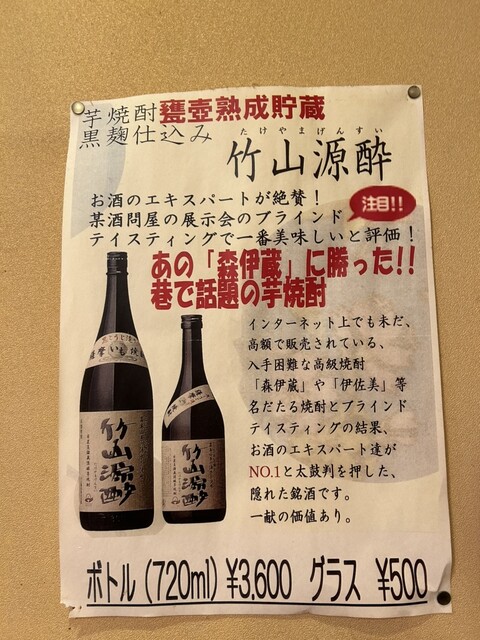 芋焼酎甕壺熟成貯蔵
黒麹仕込み
たけやまげんすい
竹山源酔
お酒のエキスパートが絶賛！
某酒問屋の展示会のブラインド
注目!!
テイスティングで一番美味しいと評価！
あの「森伊蔵」に勝った!!
巷で話題の芋焼酎
インターネット上でも未だ、
高額で販売されている、
入手困難な高級焼酎
「森伊蔵」や「伊佐美」等
名だたる焼酎とブラインド
テイスティングの結果、
お酒のエキスパート達が
NO.1と太鼓判を押した、
隠れた銘酒です。
一献の価値あり。
竹山源酔
竹山源酔
ボトル(720ml) ¥3,600 グラス ¥500